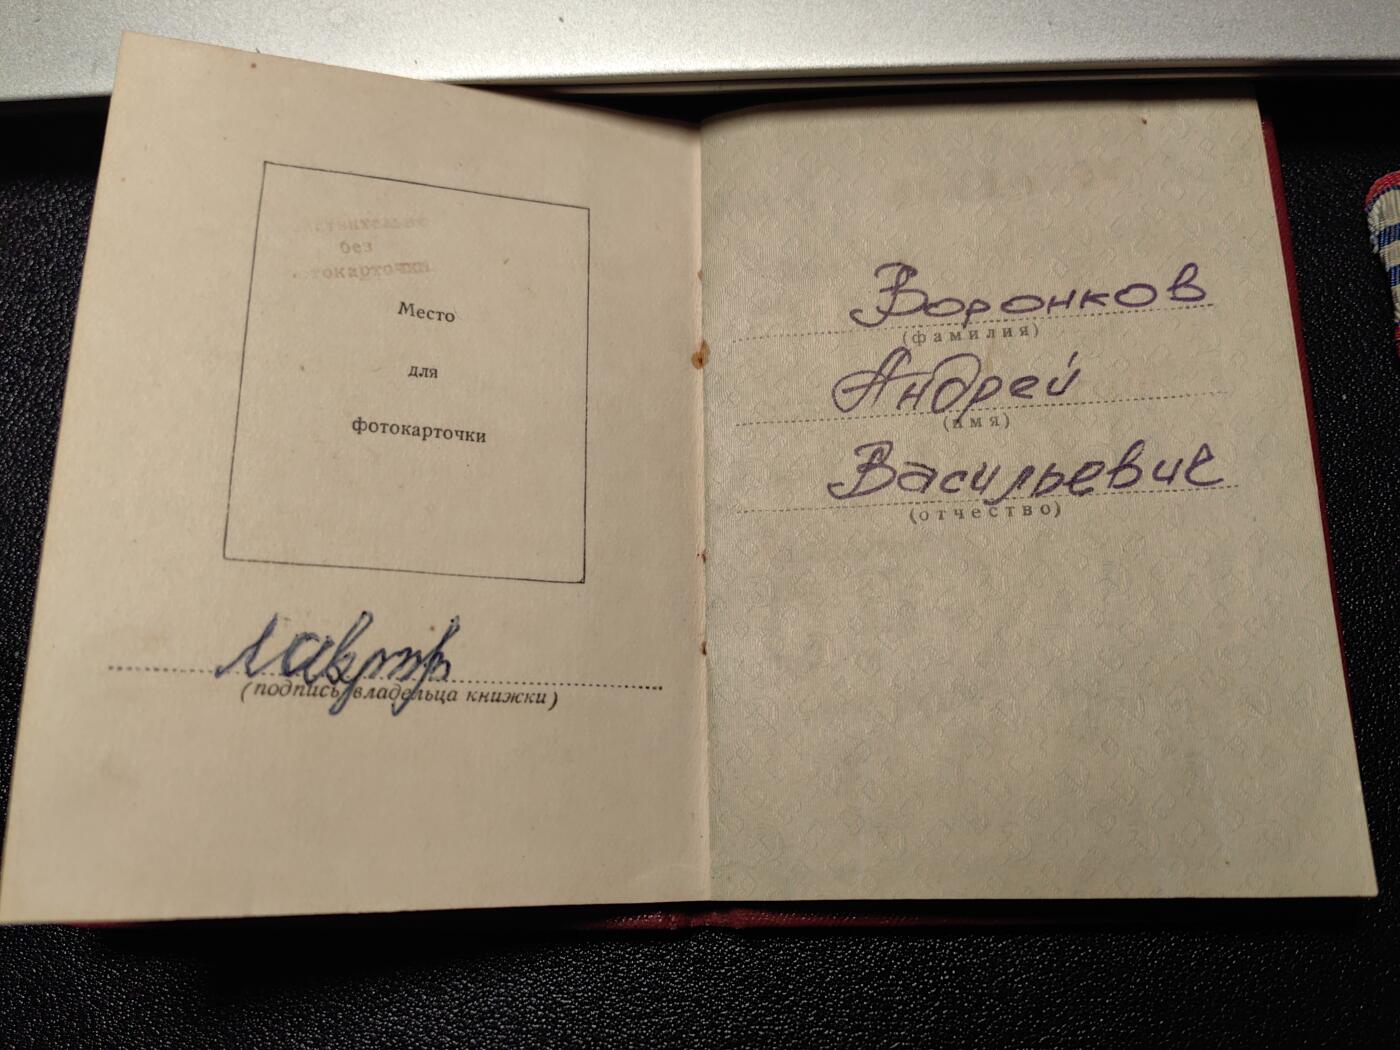 без
фотокарточки
Место
для
фотокарточки
(подпись владельца книжки)
Воронков
(фамилия)
Андрей
(имя)
Васильевич
(отчество)